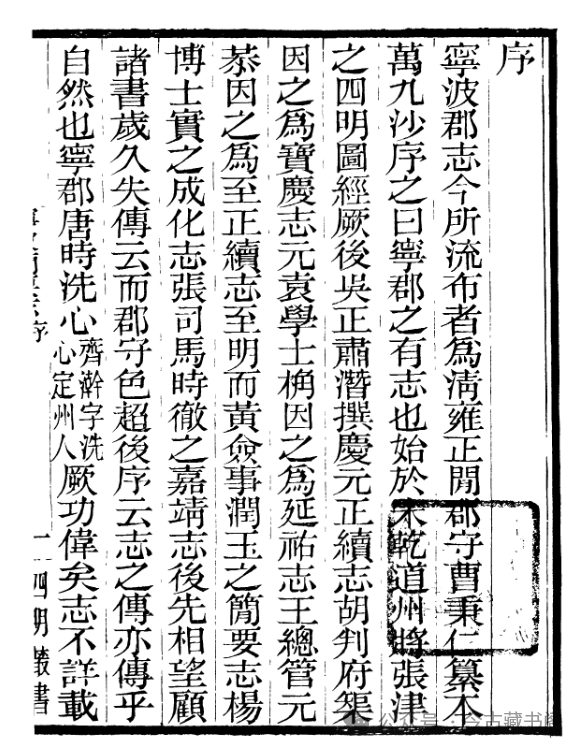 序
寧波郡志今所流布者爲淸雍正閒郡守曹秉仁纂本
萬九沙序之曰寧郡之有志也始於宋乾道州將張津
之四明圖經厥後吳正肅潛撰慶元正續志胡判府榘
因之爲寶慶志元袁學士桷因之爲延祐志王總管元
恭因之爲至正續志至明而黃僉事潤玉之簡要志楊
博士實之成化志張司馬時徹之嘉靖志後先相望顧
諸書歲久失傳云而郡守色超後序云志之傳亦傳乎
自然也寧郡唐時洗心齊澣字洗心定州人厥功偉矣志不詳載
序
一
四明叢書
公众号·今古藏书阁